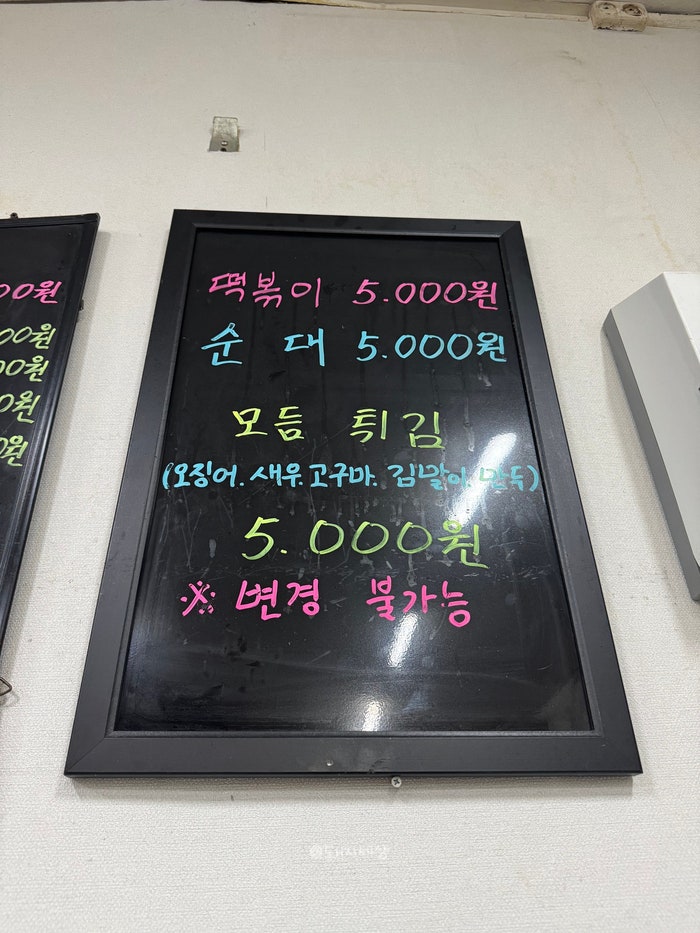 00원
00원
00원
0원
0원
떡볶이 5.000원
순 대 5.000원
모듬 튀김
(오징어. 새우. 고구마. 김말이. 만두)
5.000원
※ 변경 불가능